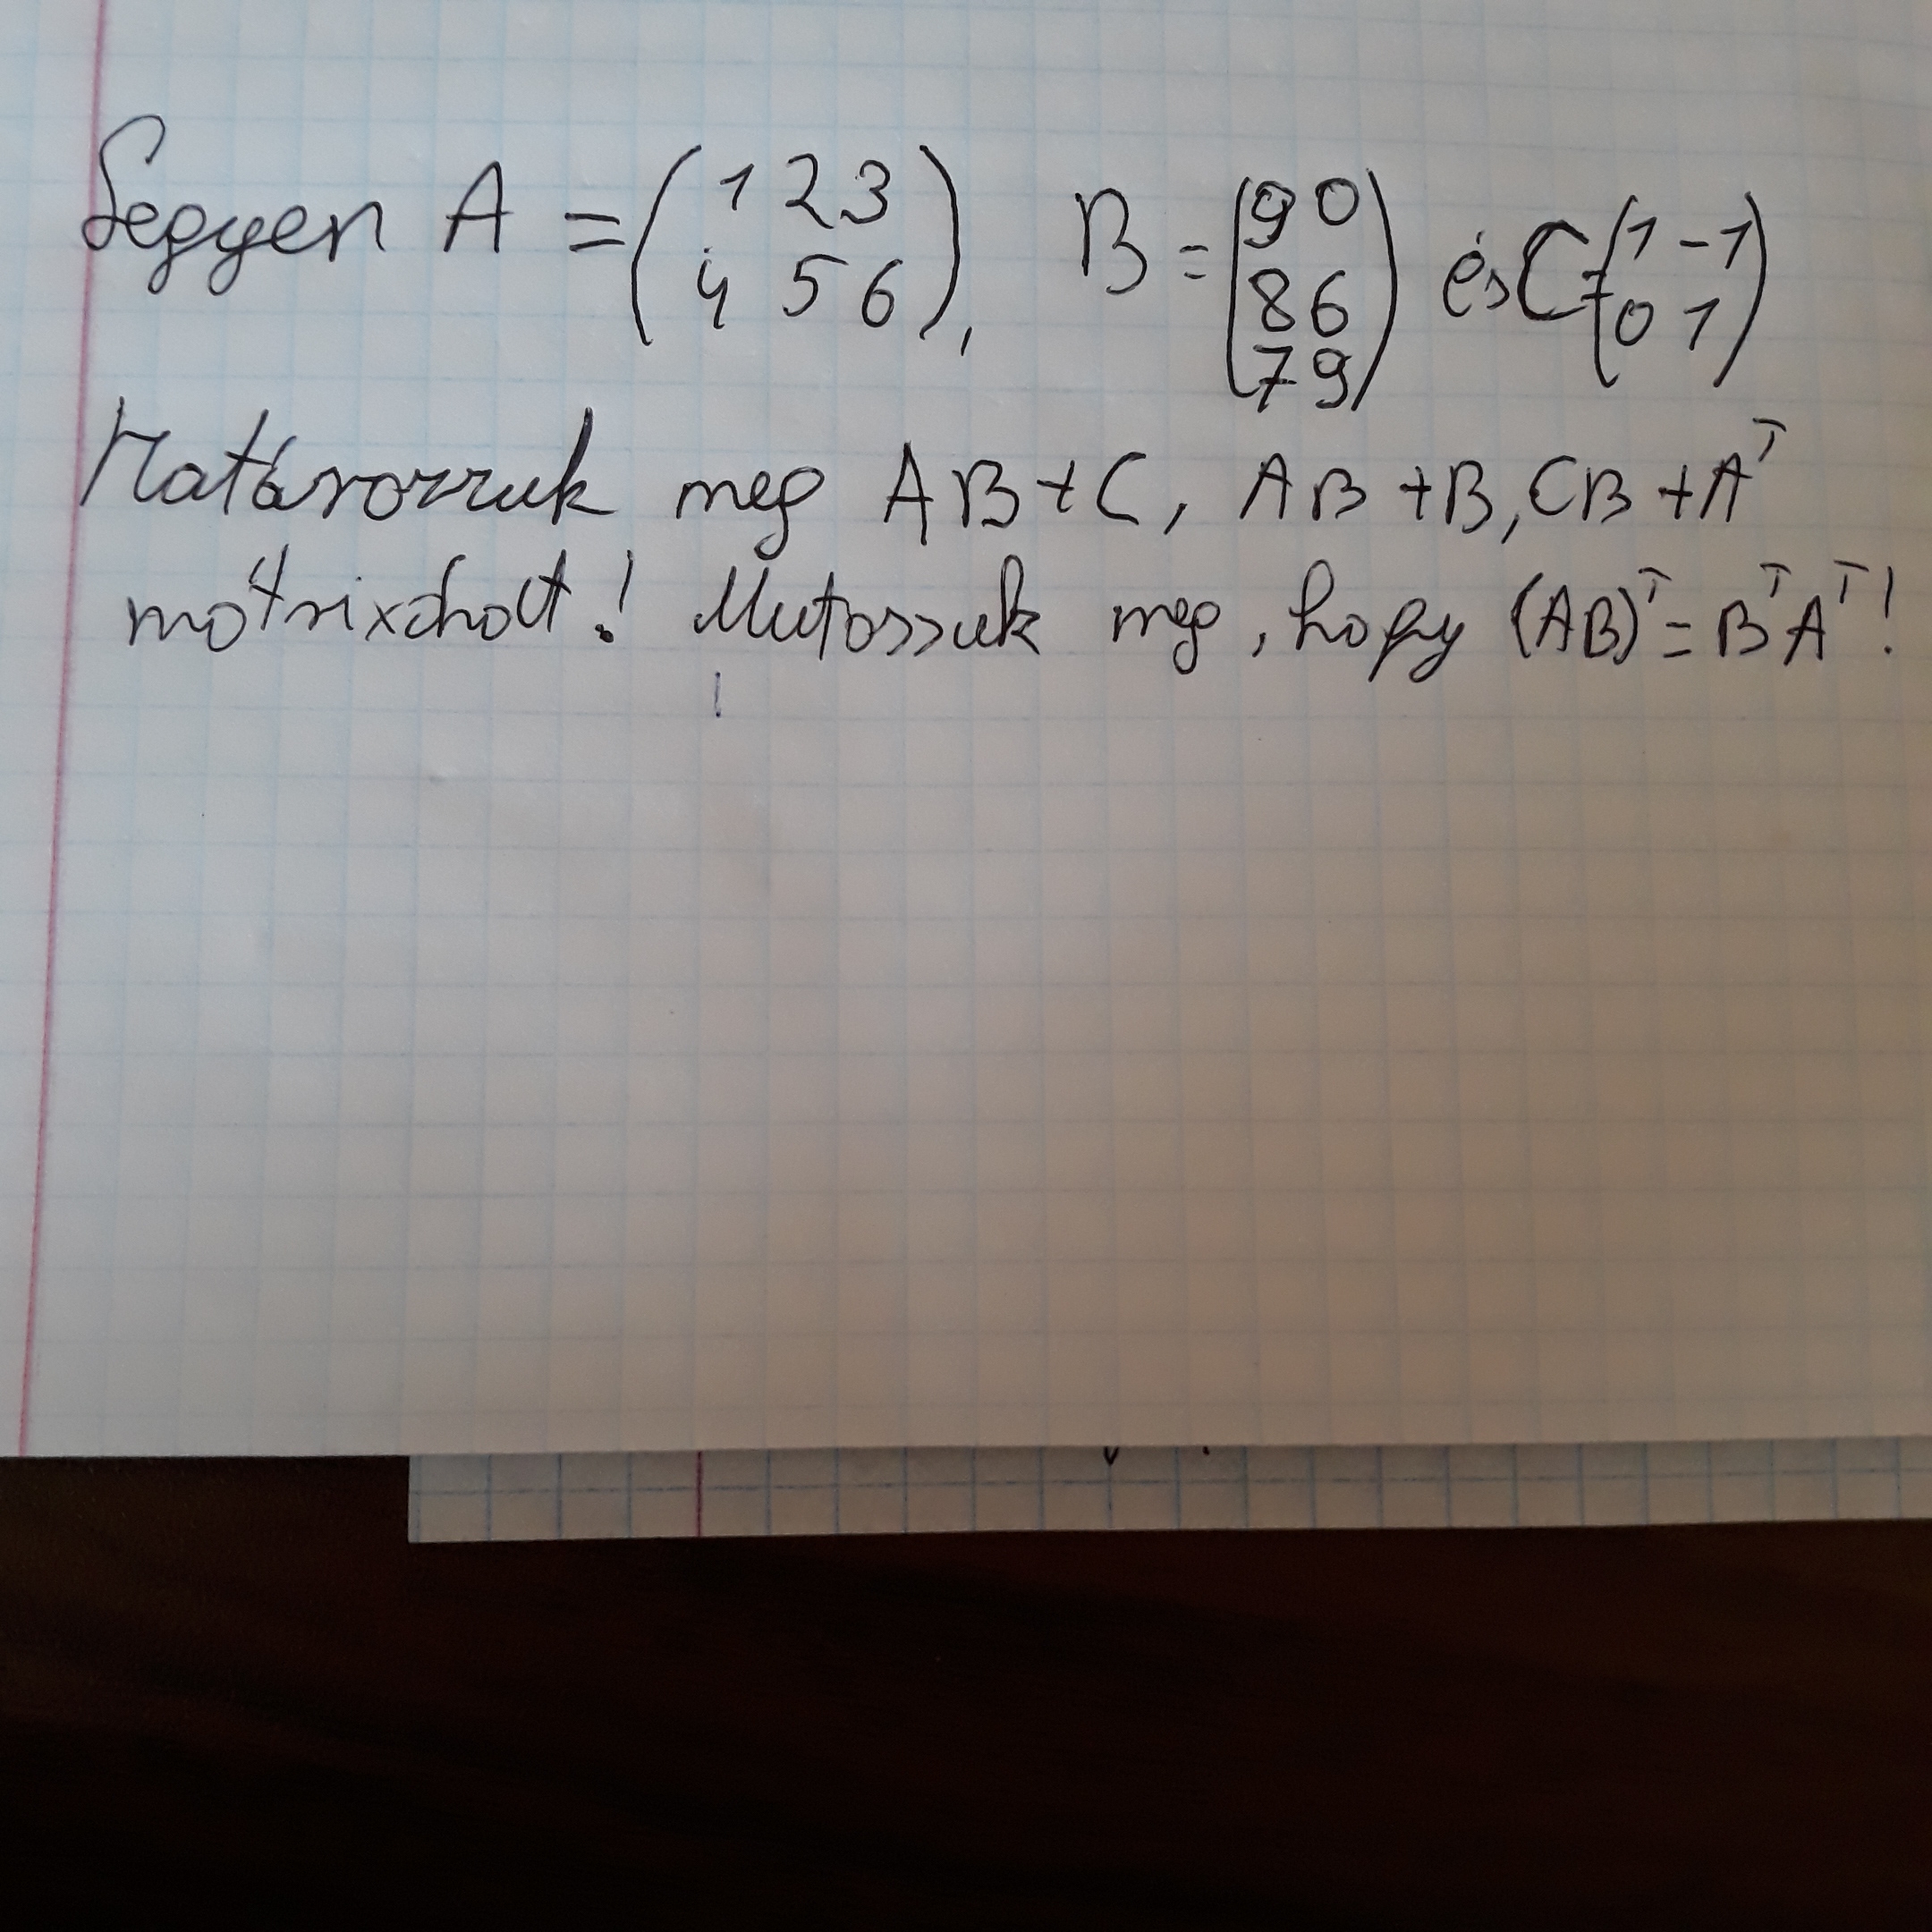 Legyen A = (1 2 3
4 5 6), B = (9 0
8 6
7 9) és C = (1 -1
0 1)
Határozzuk meg AB+C, AB+B, CB+Aᵀ
mátrixokat! Mutassuk meg, hogy (AB)ᵀ=BᵀAᵀ!